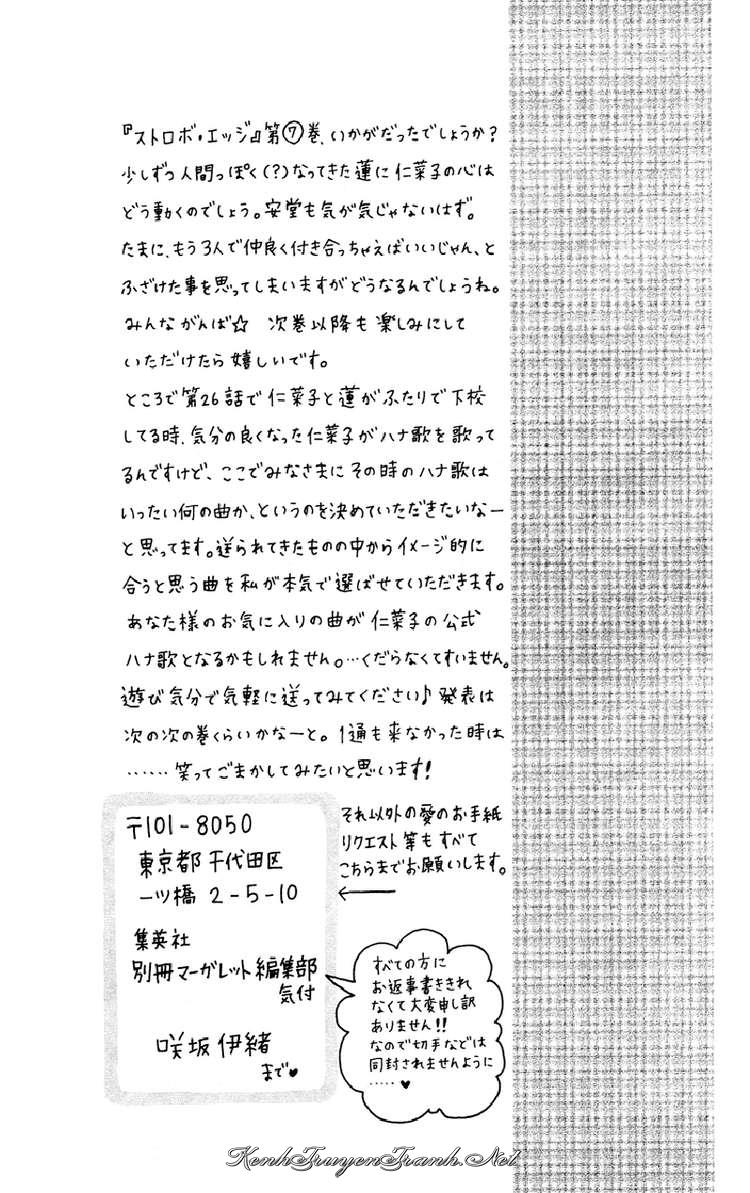 『ストロボ・エッジ』第⑦巻、いかがだったでしょうか?
少しずつ人間っぽく(?)なってきた蓮に仁菜子の心は
どう動くのでしょう。安堂も気が気じゃないはず。
たまに、もう3人で仲良く付き合っちゃえばいいじゃん、と
ふざけた事を思ってしまいますがどうなるんでしょうね。
みんながんば☆ 次巻以降も楽しみにして
いただけたら嬉しいです。
ところで第26話で仁菜子と蓮がふたりで下校
してる時、気分の良くなった仁菜子がハナ歌を歌って
るんですけど、ここでみなさまにその時のハナ歌は
いったい何の曲か、というのを決めていただきたいなー
と思ってます。送られてきたものの中からイメージ的に
合うと思う曲を私が本気で選ばせていただきます。
あなた様のお気に入りの曲が仁菜子の公式
ハナ歌となるかもしれません。…くだらなくてすいません。
遊び気分で気軽に送ってみてください♪発表は
次の次の巻くらいかなーと。1通も来なかった時は
……笑ってごまかしてみたいと思います!
それ以外の愛のお手紙
リクエスト等もすべて
こちらまでお願いします。
←
〒101-8050
東京都千代田区
一ツ橋 2-5-10
集英社
別冊マーガレット編集部
気付
咲坂伊緒
まで♥
すべての方に
お返事書ききれ
なくて大変申し訳
ありません!!
なので切手などは
同封されませんように
……♥
KenhTruyenTranh.Net